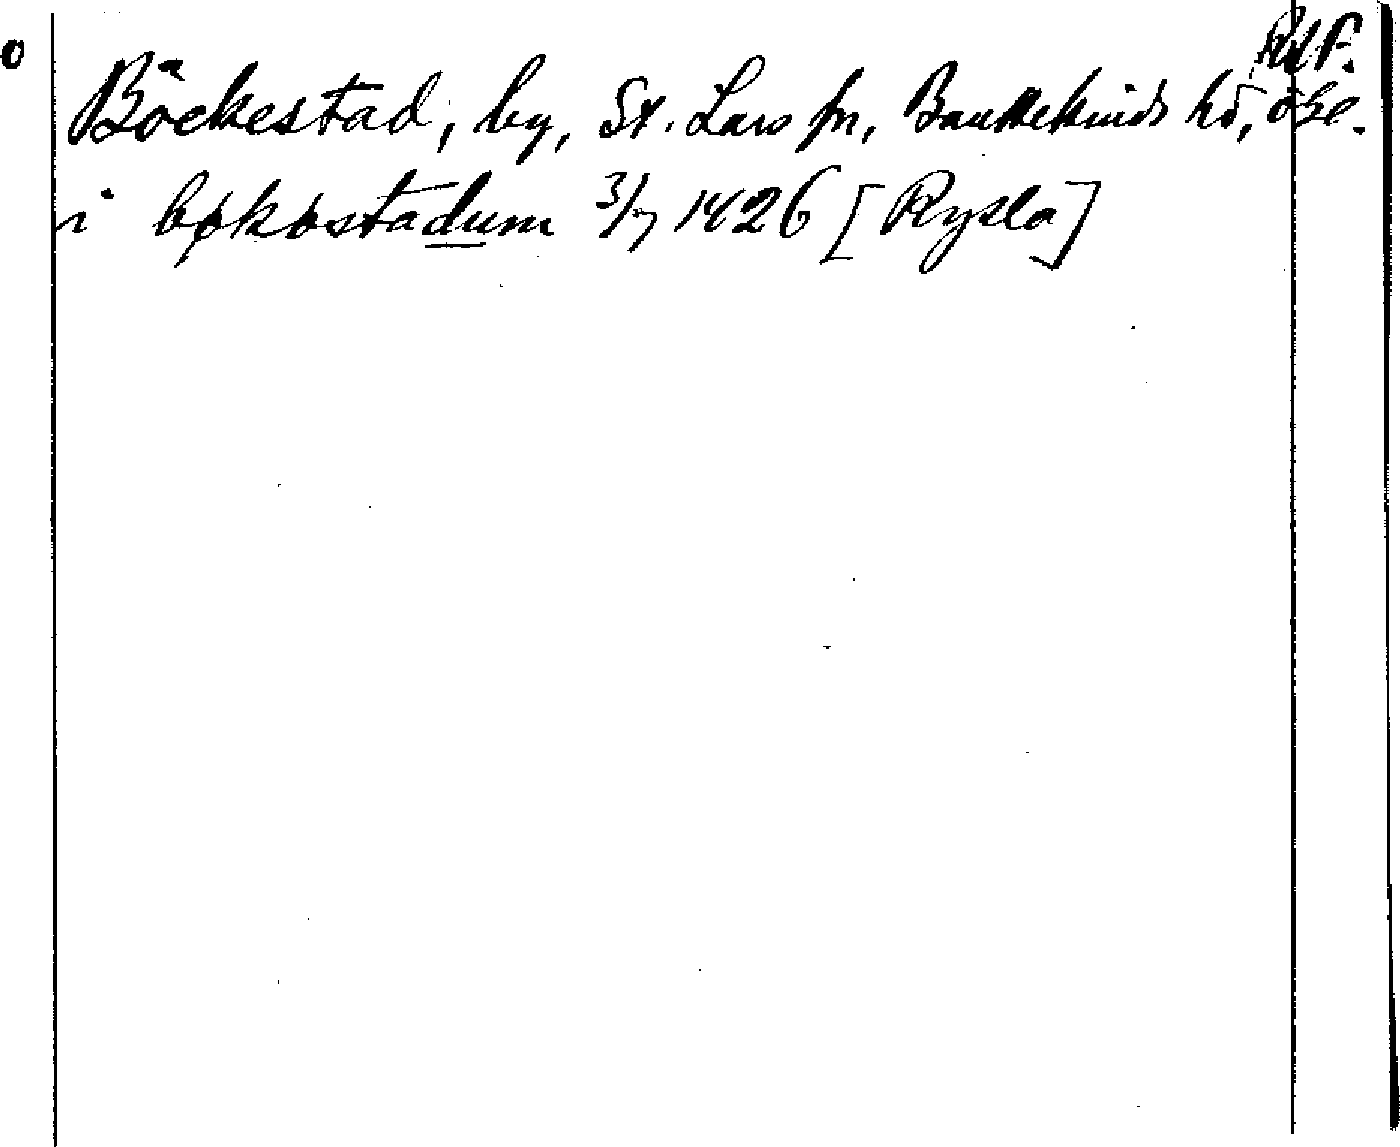 RAP.
Böckestad, by, St. Lars sn, Bankekinds hd, Ögl.
i bøkøstadum 3/7 1426 [Rysla]